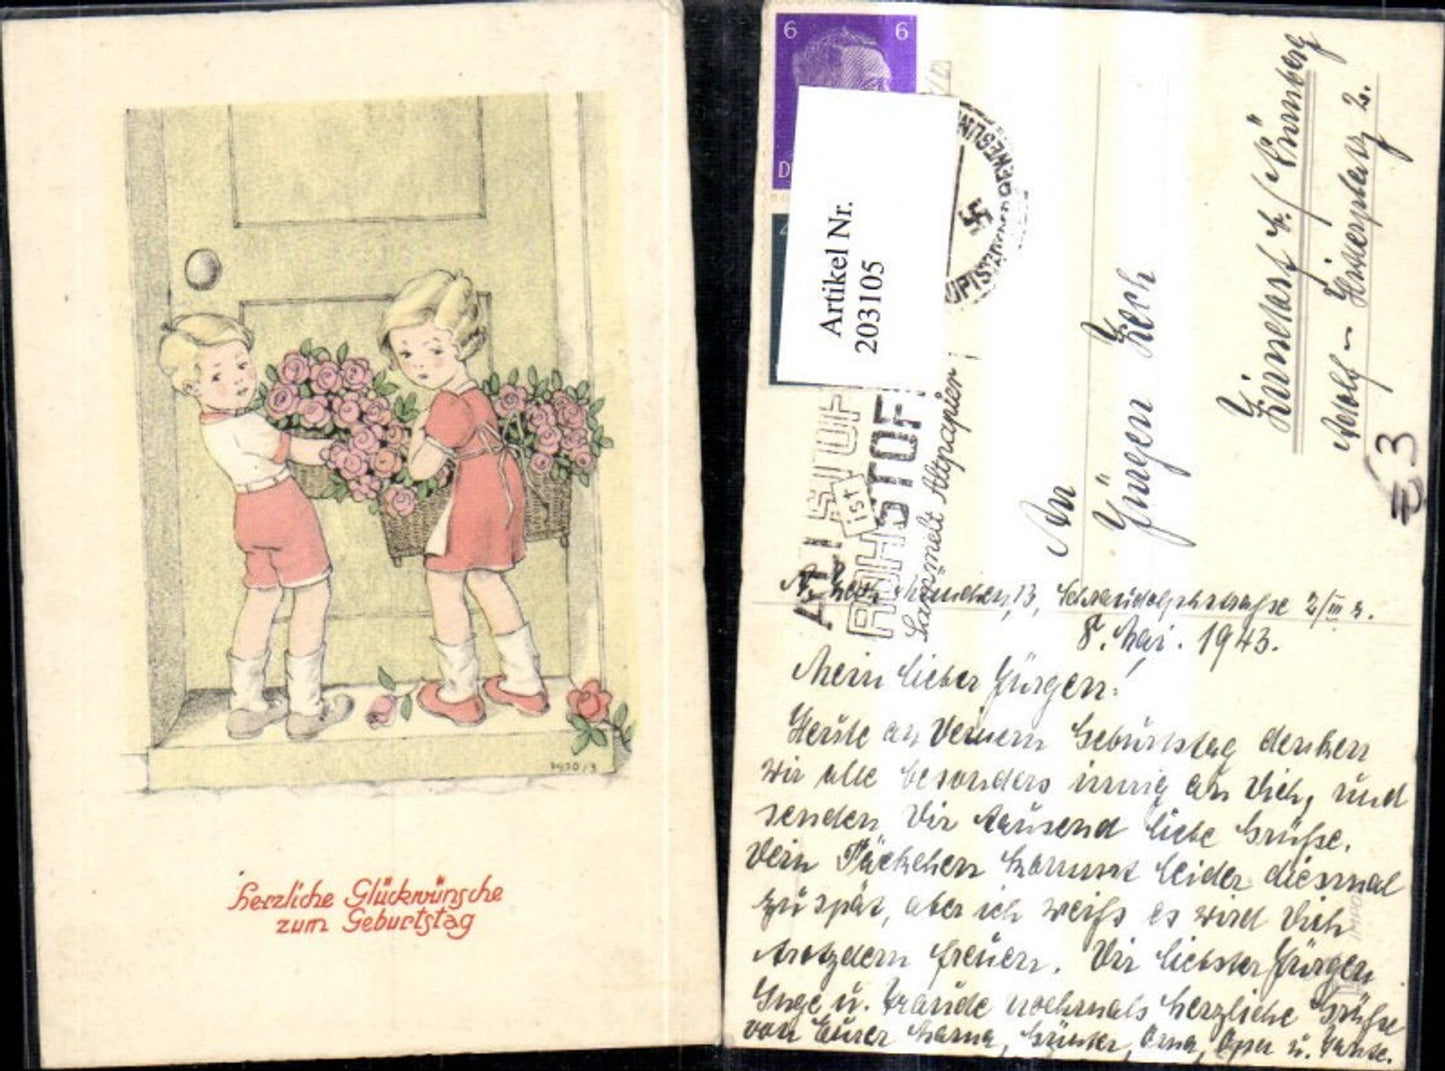 Herzliche Glückwünsche
zum Geburtstag
6 6
Artikel Nr.
203105
ALTSTOFF
ist
ROHSTOFF
Sammelt Altpapier!
An
Jürgen Zech
Zirndorf b./Nürnberg
Adolf-Hitlerplatz 2.
€3
München, 13, Schraudolphstraße 2/III r.
8. Mai. 1943.
Mein lieber Jürgen!
Heute an Deinem Geburtstag denken
wir alle besonders innig an Dich, und
senden Dir tausend liebe Grüße.
Dein Päckchen kommt leider diesmal
zu spät, aber ich weiß es wird Dich
trotzdem freuen. Dir liebster Jürgen
Inge u. Traude nochmals herzliche Grüße
von Eurer Mama, Günter, Oma, Opa u. Tante.